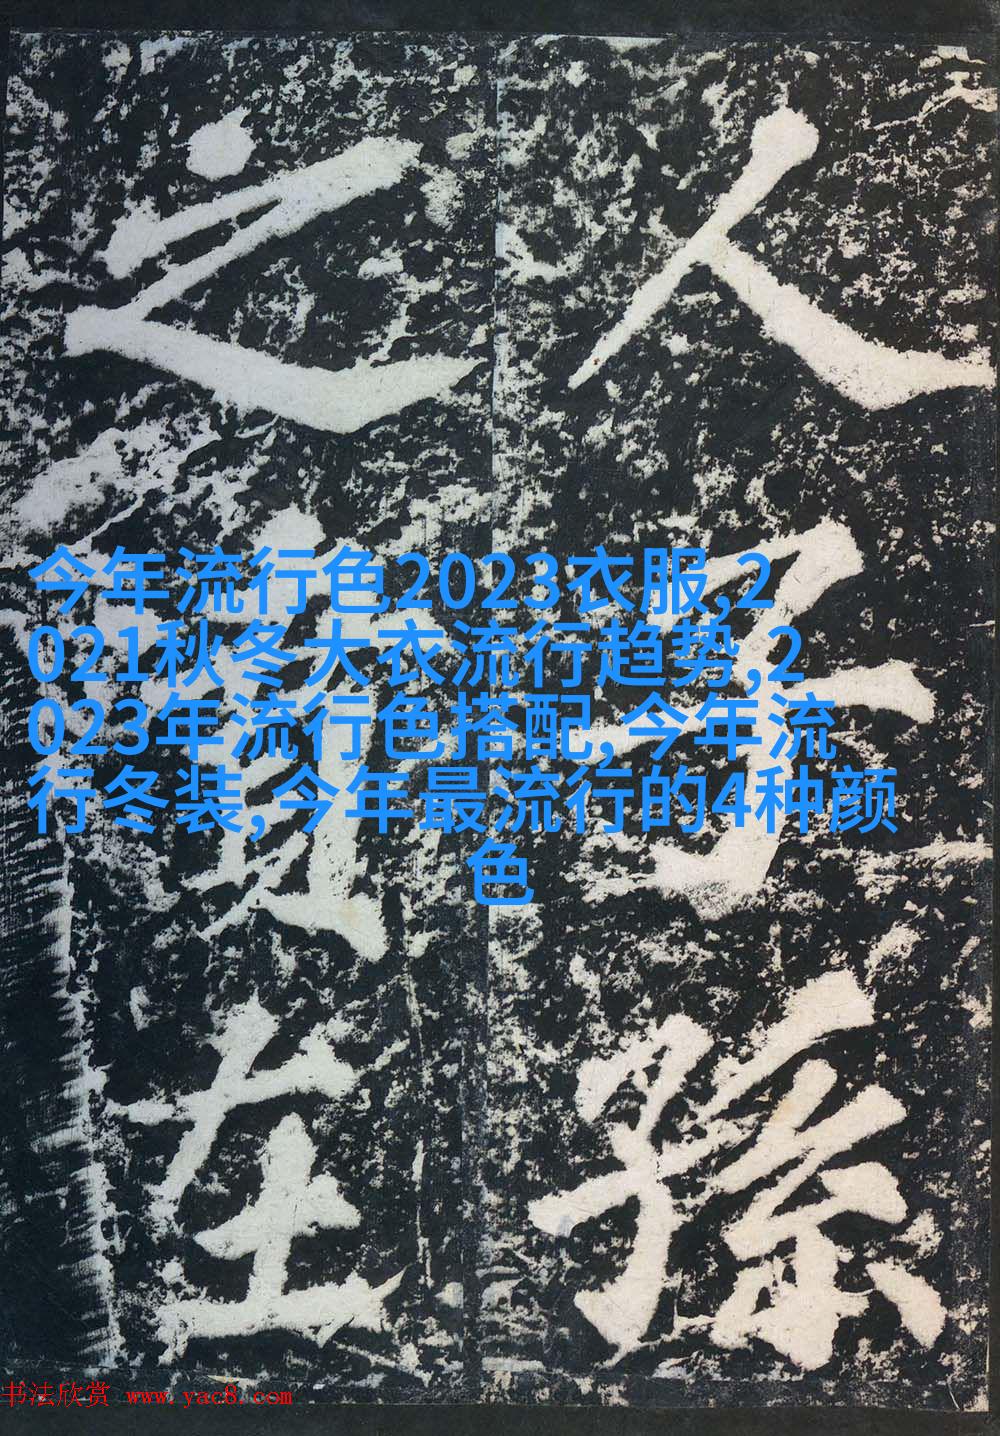 人子孫
之在
今年流行色2023衣服,2
021秋冬大衣流行趋势,2
023年流行色搭配,今年流
行冬装,今年最流行的4种颜
色
书法欣赏 www.yac8.com